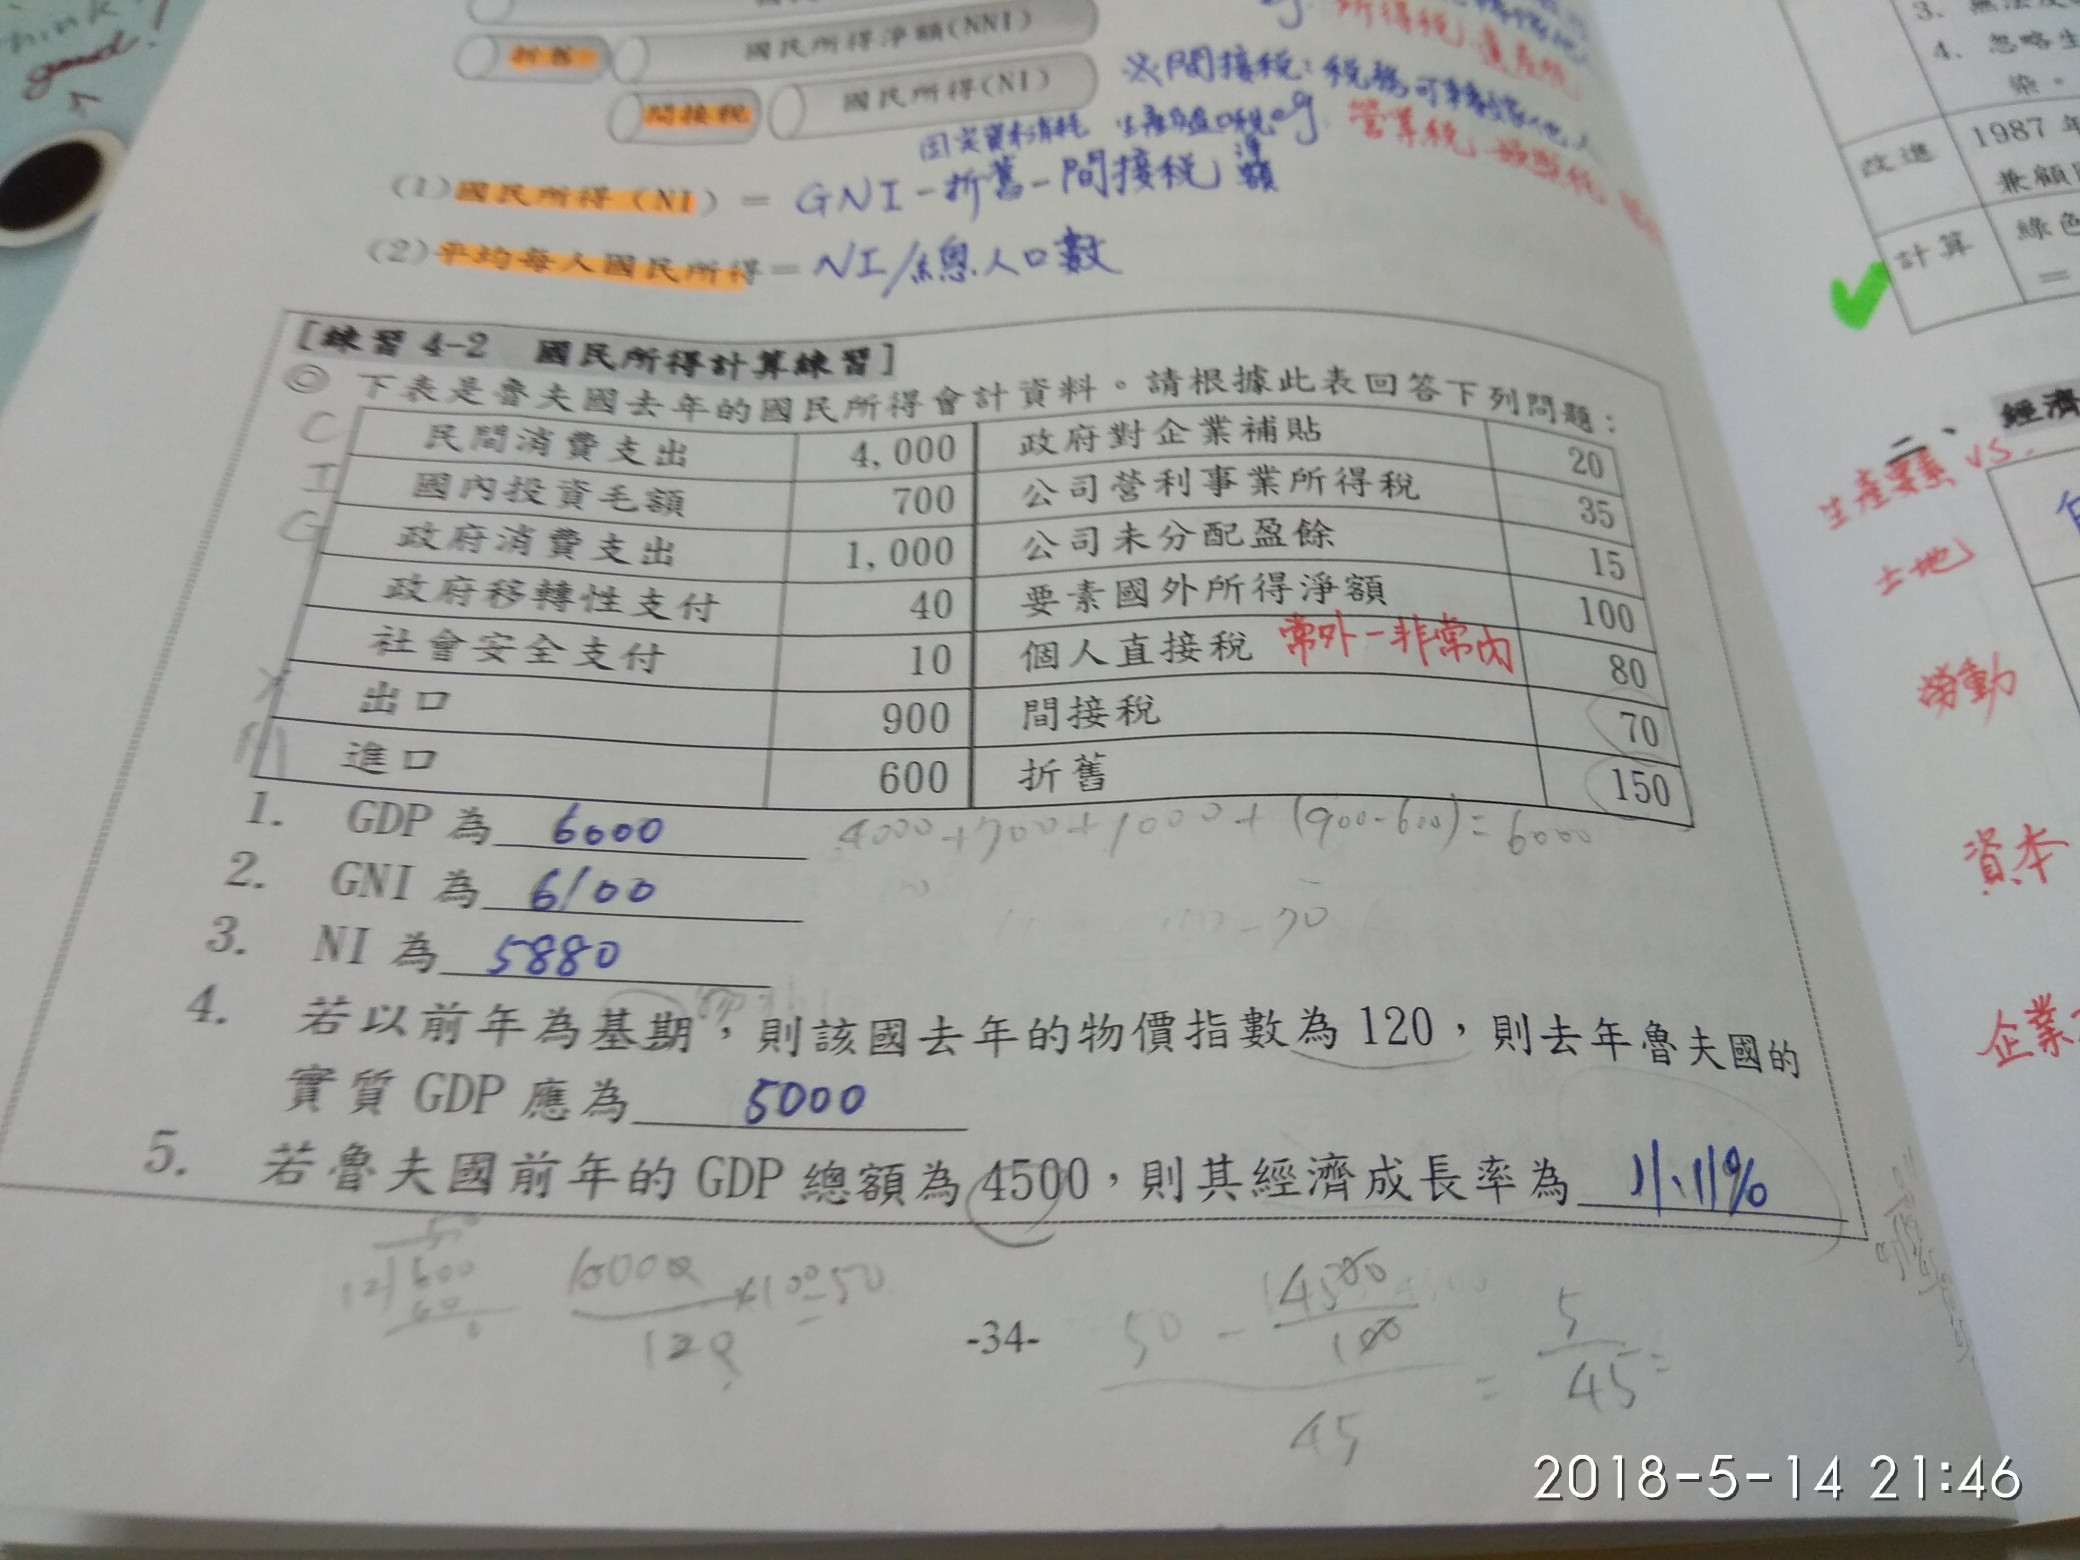 good!
國民所得淨額(NNI)
折舊
國民所得(NI)
間接稅
所得稅、遺產稅
※間接稅:稅務可轉嫁他人
固定資本消耗 生產與進口稅 eg. 營業稅
(1)國民所得(NI)= GNI-折舊-間接稅淨額
(2)平均每人國民所得= NI/總人口數
[練習 4-2 國民所得計算練習]
◎ 下表是魯夫國去年的國民所得會計資料。請根據此表回答下列問題:
C 民間消費支出 4,000 政府對企業補貼 20
I 國內投資毛額 700 公司營利事業所得稅 35
G 政府消費支出 1,000 公司未分配盈餘 15
政府移轉性支付 40 要素國外所得淨額 100
社會安全支付 10 個人直接稅 常外-非常內 80
X 出口 900 間接稅 70
M 進口 600 折舊 150
1. GDP 為 6000 4000+700+1000+(900-600)=6000
2. GNI 為 6100
-70
3. NI 為 5880
4. 若以前年為基期,則該國去年的物價指數為 120,則去年魯夫國的
實質 GDP 應為 5000
5. 若魯夫國前年的 GDP 總額為 4500,則其經濟成長率為 11.11%
12 600
60
0
6000
120
×100=50
50 - 4500
100
45
= 5
45 =
-34-
3. 無法反
4. 忽略生
染。
改進 1987 年
兼顧
計算 綠色
=
二、經濟
生產要素 vs.
土地
勞動
資本
企業
2018-5-14 21:46